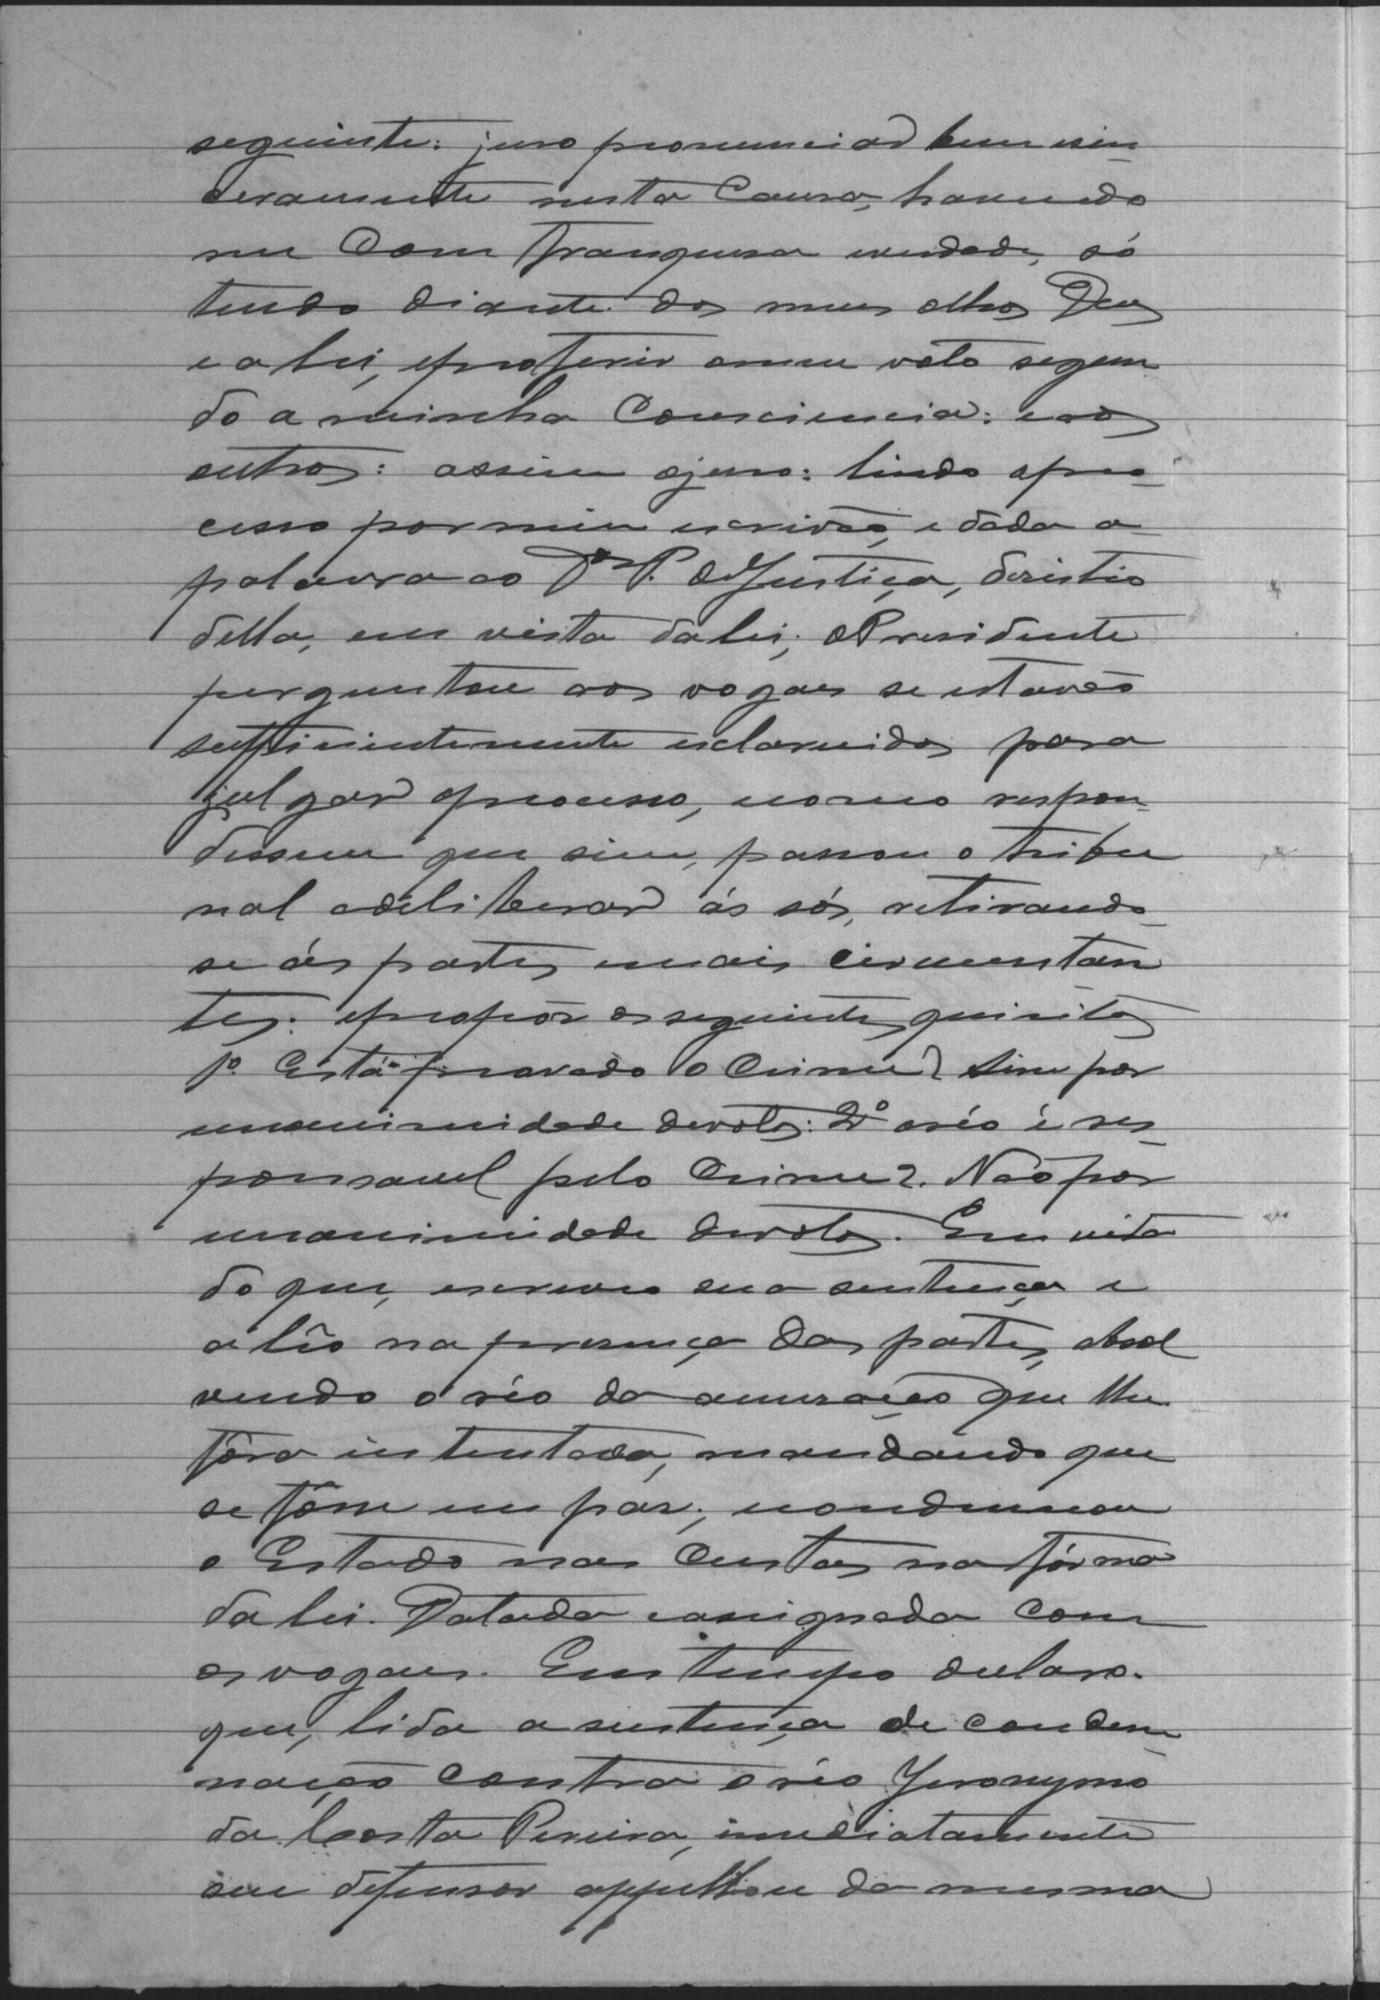 seguinte: juro pronunciar bem e sin
ceramente nesta Causa, havendo
me Com franquesa e verdade, só
tendo diante dos meus olhos Deus
e a lei, e proferir o meu voto segun
do a minha Consciencia: e aos
outros: assim o juro: lindo o pro-
cesso por mim escrivão, e dada a
palavra ao Dor P. da Justiça, desistio
della, em vista da lei; o Presidente
perguntou aos vogaes se estavão
sufficientemente esclarecidos para
julgar o processo, e como respon-
dessem que sim, passou o tribu
nal a deliberar ás sós, retirando-
se ás partes e mais circunstan
tes: e propôr os seguintes quisitos
1º Está provado o Crime? Sim por
unanimidade de votos: 2º o réo é res-
ponsavel pelo Crime?. Não por
unanimidade de votos. Em vista
do que, escreveu sua sentença e
a lêo na presença das partes, absol
vendo o réo da accusação que lhe
fôra intentada, mandando que
se fôsse em paz; e condemnou
o Estado nas Custas na fórma
da lei. Datada e assignada Com
os vogaes. Em tempo declaro.
que, lida a sentença de condem-
nação contra o réo Jeronymo
da Costa Pereira, imediatamente
seu defensor appellou da mesma